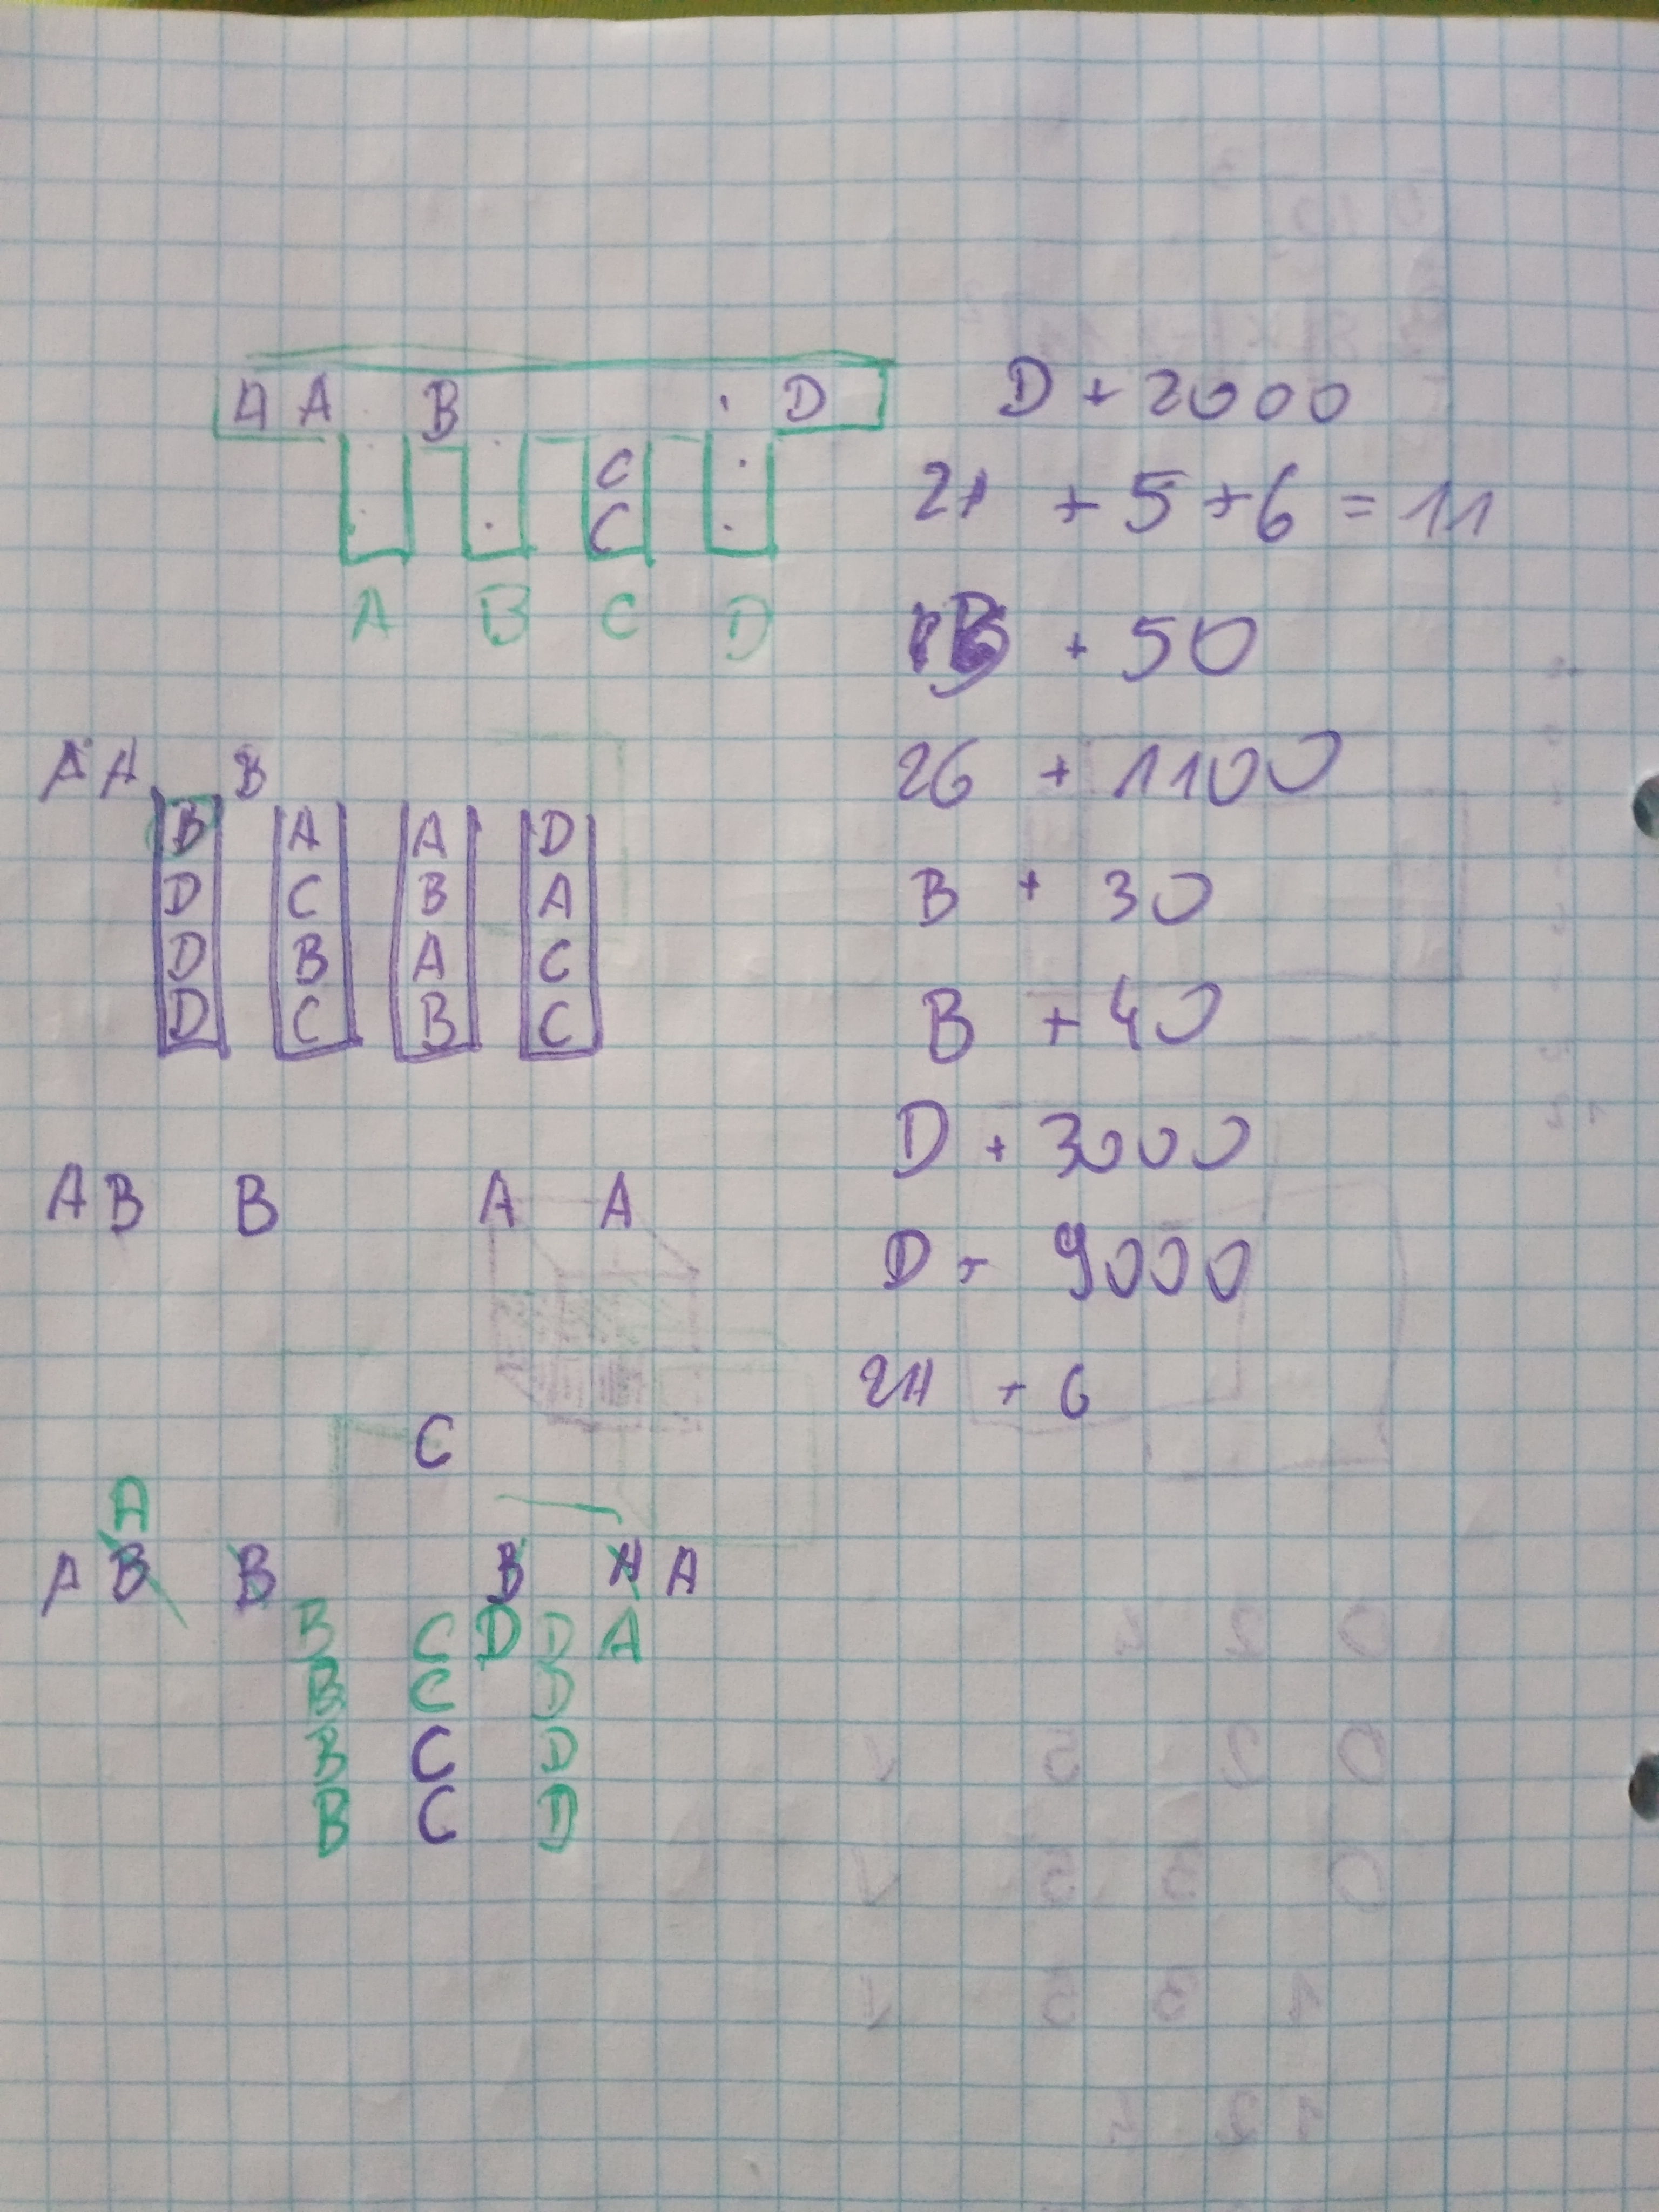 A A B D
C
C
A B C D
A A B
B A A D
D C B A
D B A C
D C B C
A B B A A
C
A
A B B B A A
B C D D A
B C D
B C D
B C D
D + 2000
+ 5 + 6 = 11
B + 50
26 + 1100
B + 30
B + 40
D + 3000
D + 9000
2A + 6